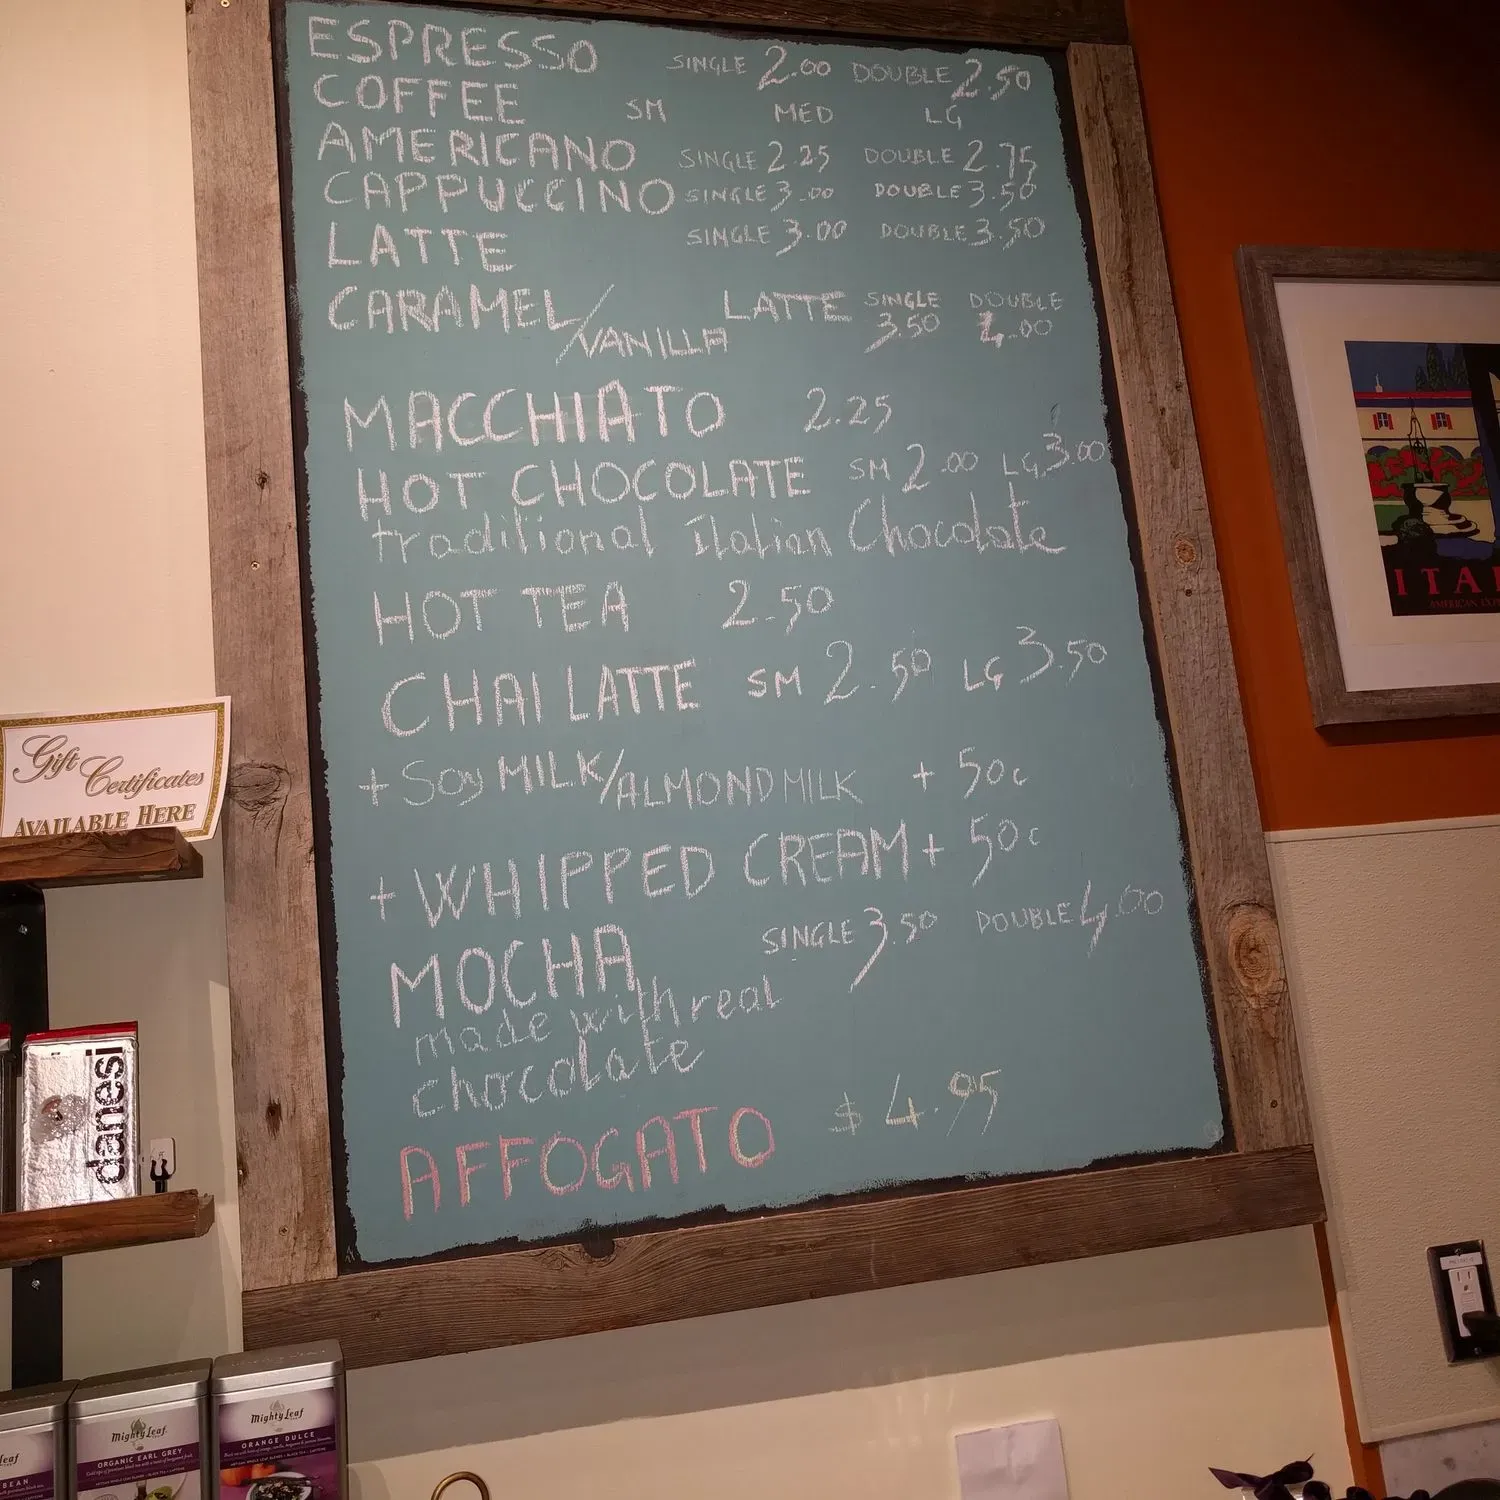 ESPRESSO SINGLE 2.00 DOUBLE 2.50
COFFEE SM MED LG
AMERICANO SINGLE 2.25 DOUBLE 2.75
CAPPUCCINO SINGLE 3.00 DOUBLE 3.50
LATTE SINGLE 3.00 DOUBLE 3.50
CARAMEL/VANILLA LATTE SINGLE 3.50 DOUBLE 4.00
MACCHIATO 2.25
HOT CHOCOLATE SM 2.00 LG 3.00
traditional Italian Chocolate
HOT TEA 2.50
CHAI LATTE SM 2.50 LG 3.50
+ Soy MILK/ALMOND MILK + 50c
+ WHIPPED CREAM + 50c
MOCHA SINGLE 3.50 DOUBLE 4.00
made with real
chocolate
AFFOGATO $4.95
Gift Certificates
AVAILABLE HERE
danesi
ITA
Mighty Leaf
ORGANIC EARL GREY
Mighty Leaf
ORANGE DULCE
BEAN